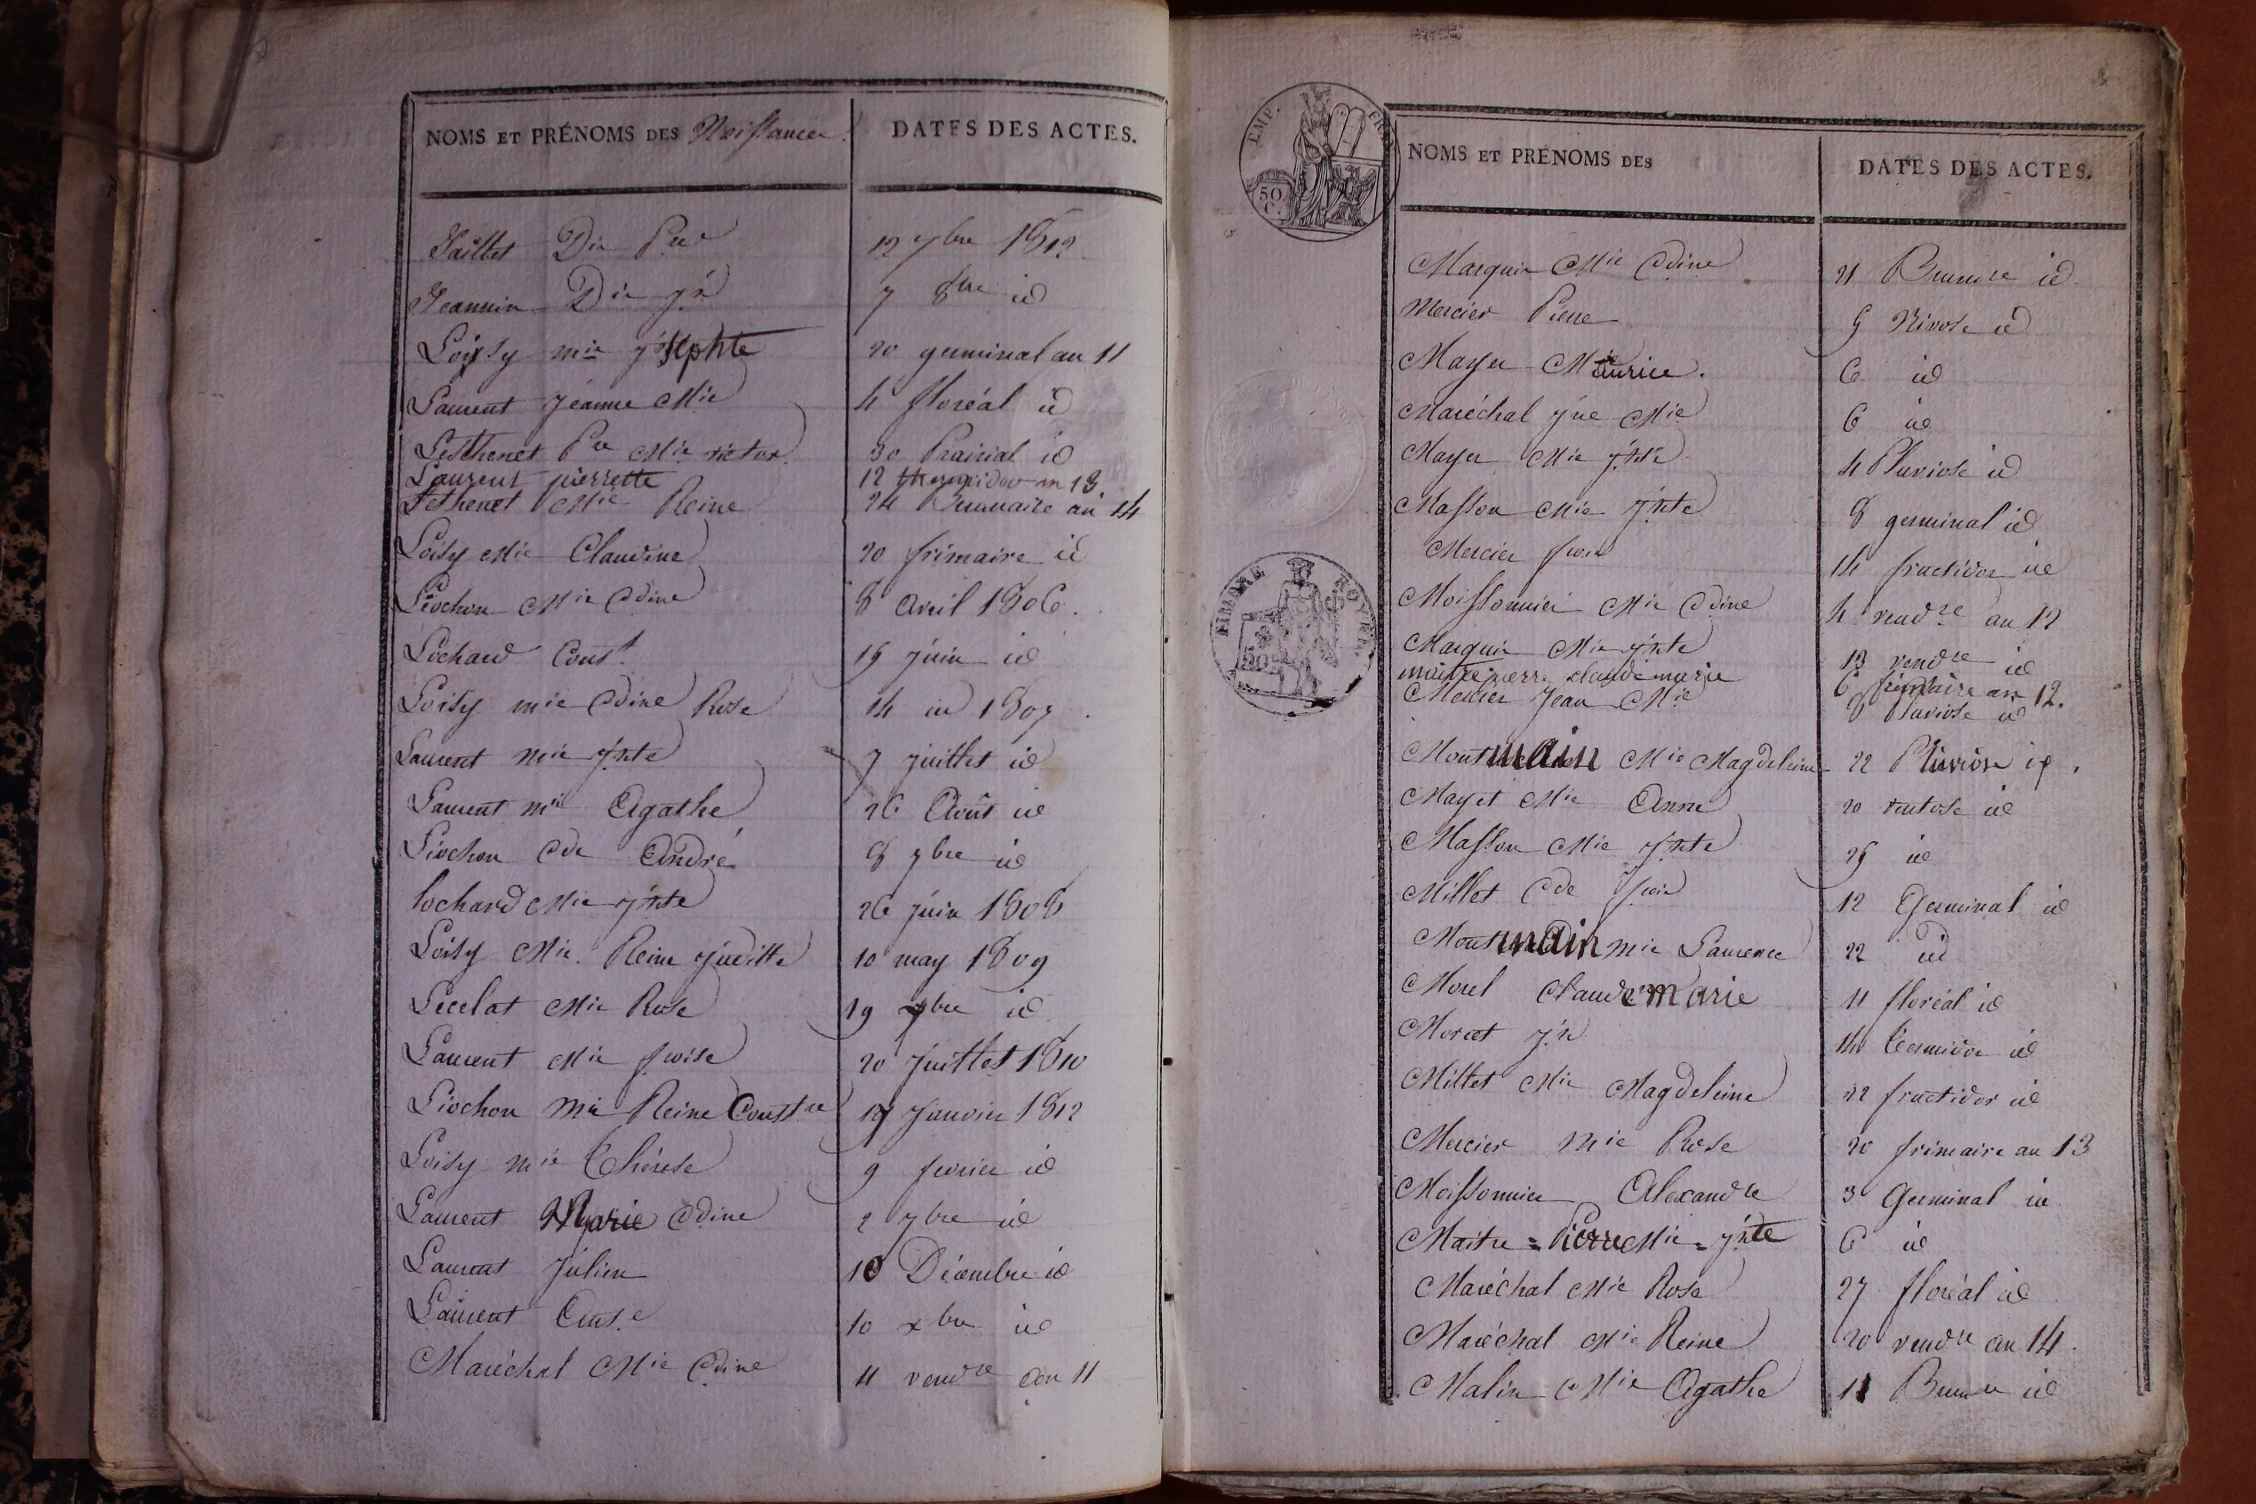 NOMS ET PRÉNOMS DES Naissances. DATES DES ACTES.
Jaillet Die 12 7bre 1812
Jeannin Die Jh 7 8bre id
Loisy mie josephte 20 germinal an 11
Laurent Jeanne Mie 4 floréal id
Lesthenet Mie victor 30 Prairial id
Laurent pierrette 12 thermidor an 13.
Lethenet Mie Reine 24 Brumaire an 14
Loisy Mie Claudine 20 frimaire id
Liochon Mie Cdine 8 Avril 1806.
Lochard Const. 15 juin id
Loisy mie Cdine Rose 14 id 1807.
Laurent mie Jphte 7 Juillet id
Laurent mie Agathe 26 Août id
Liochon Cde André 8 9bre id
Lochard Mie Jphte 26 juin 1808
Loisy Mie Reine Juditte 10 may 1809
Lecelat Mie Rose 19 bre id
Laurent Mie fcoise 20 Juillet 1810
Liochon Mie Reine Constce 19 Janvier 1812
Loisy mie Thérese 9 fevrier id
Laurent Marie Cdine 2 7bre id
Laurent Julien 10 Décembre id
Laurent 10 xbre id
Maréchal Mie Cdine 11 vendre an 11
EMP. FR.
50 C.
TIMBRE ROYAL.
50
NOMS ET PRÉNOMS DES DATES DES ACTES.
Marquis Mie Cdine 21 Brumre id
Mercier Pierre 5 Nivose id
Mayer Maurice. 6 id
Maréchal Jne Mie 6 id
Mayer Mie Jphte 4 Pluviose id
Masson Mie Jphte 8 germinal id
Mercier fcois 14 fructidor id
Moissonnier Mie Cdine 4 vendre an 12
Marquis Mie Jphte 13 vendre id
maitre pierre claude marie 6 frimaire an 12.
Mercier Jean Mie 8 Pluviose id
Montmain Mie Magdeleine 22 Pluviose id.
Mayet Mie Anne 20 ventose id
Masson Mie Jphte 25 id
Millet Cde fcois 12 Germinal id
Montmain mie Laurence 22 id
Morel Claude Marie 11 floréal id
Moret Jh 14 Termidor id
Millet Mie Magdeleine 22 fructidor id
Mercier Mie Rose 20 frimaire an 13
Moissonnier Alexandre 3 Germinal id
Maitre = Pierre Mie = Jphte 6 id
Maréchal Mie Rose 27 floréal id
Maréchal Mie Reine 20 vendre an 14.
Malin Mie Agathe 11 Brumre id